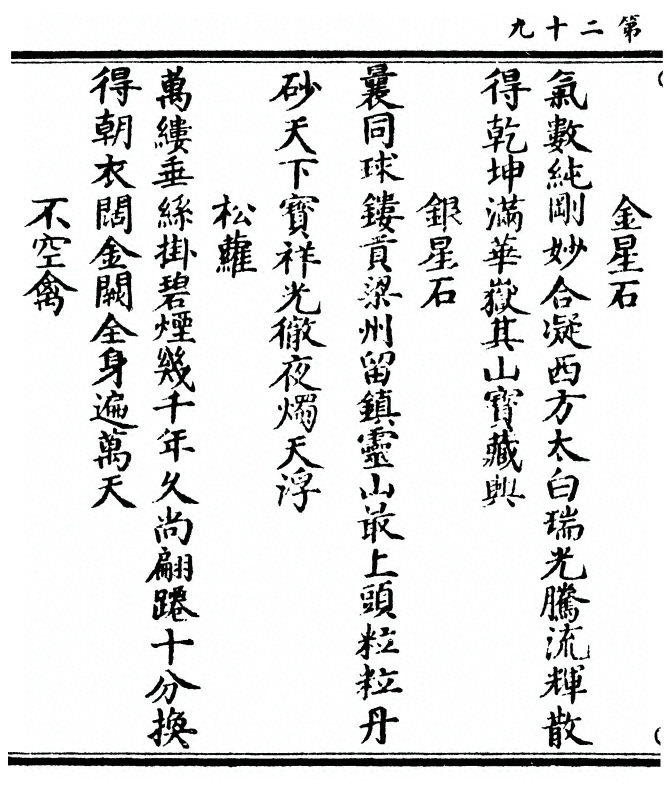 第二十九
金星石
氣數純剛妙合凝西方太白瑞光騰流輝散
得乾坤滿華嶽其山寶藏興
銀星石
曩同球鏤貢梁州留鎮靈山最上頭粒粒丹
砂天下寶祥光徹夜燭天浮
松蘿
萬縷垂絲掛碧煙幾千年久尚翩蹮十分換
得朝衣闊金闕全身遍萬天
不空禽